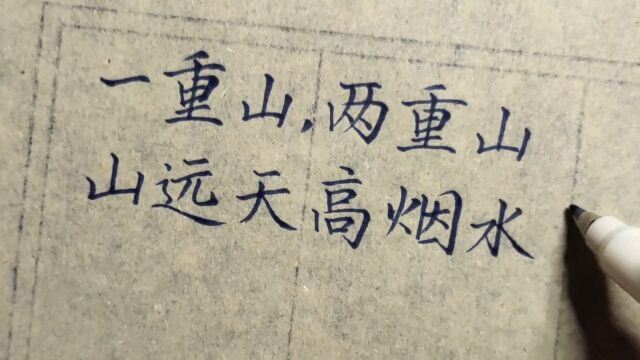 一重山,两重山
山远天高烟水